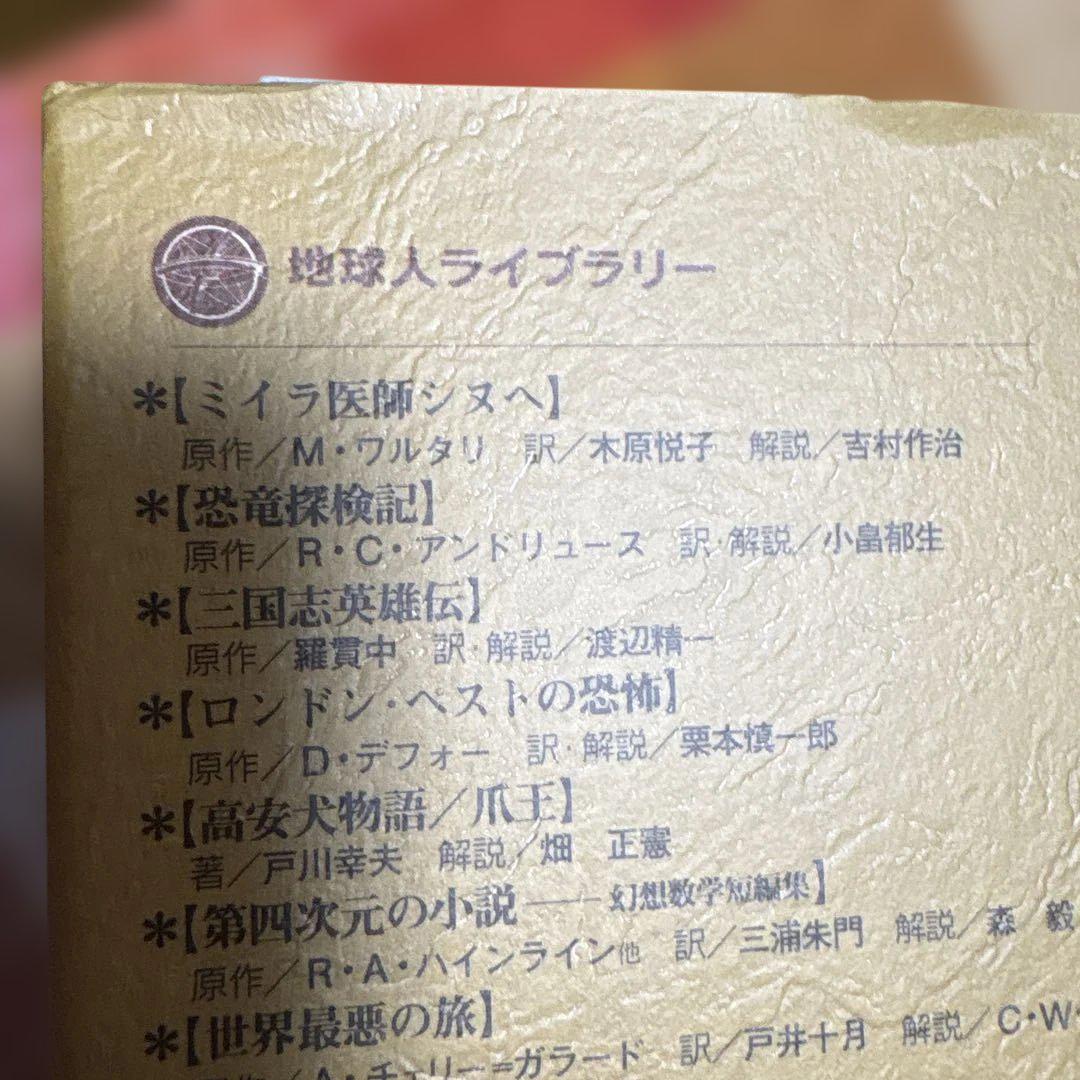 地球人ライブラリー
＊【ミイラ医師シヌヘ】
原作／M・ワルタリ 訳／木原悦子 解説／吉村作治
＊【恐竜探検記】
原作／R・C・アンドリュース 訳・解説／小畠郁生
＊【三国志英雄伝】
原作／羅貫中 訳・解説／渡辺精一
＊【ロンドン・ペストの恐怖】
原作／D・デフォー 訳・解説／栗本慎一郎
＊【高安犬物語／爪王】
著／戸川幸夫 解説／畑 正憲
＊【第四次元の小説――幻想数学短編集】
原作／R・A・ハインライン他 訳／三浦朱門 解説／森 毅
＊【世界最悪の旅】
原作／A・チェリー=ガラード 訳／戸井十月 解説／C・W・